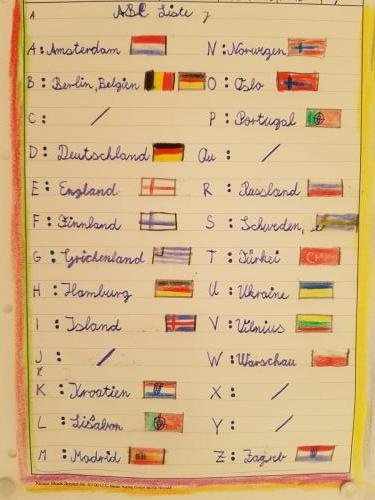 ABC Liste
A: Amsterdam
B: Berlin, Belgien
C: /
D: Deutschland
E: England
F: Finnland
G: Grichenland
H: Hamburg
I: Island
J: /
K: Kroatien
L: Lissabon
M: Madrid
N: Norwegen
O: Oslo
P: Portugal
Qu: /
R: Russland
S: Schweden,
T: Türkei
U: Ukraine
V: Vilnius
W: Warschau
X: /
Y: /
Z: Zagreb